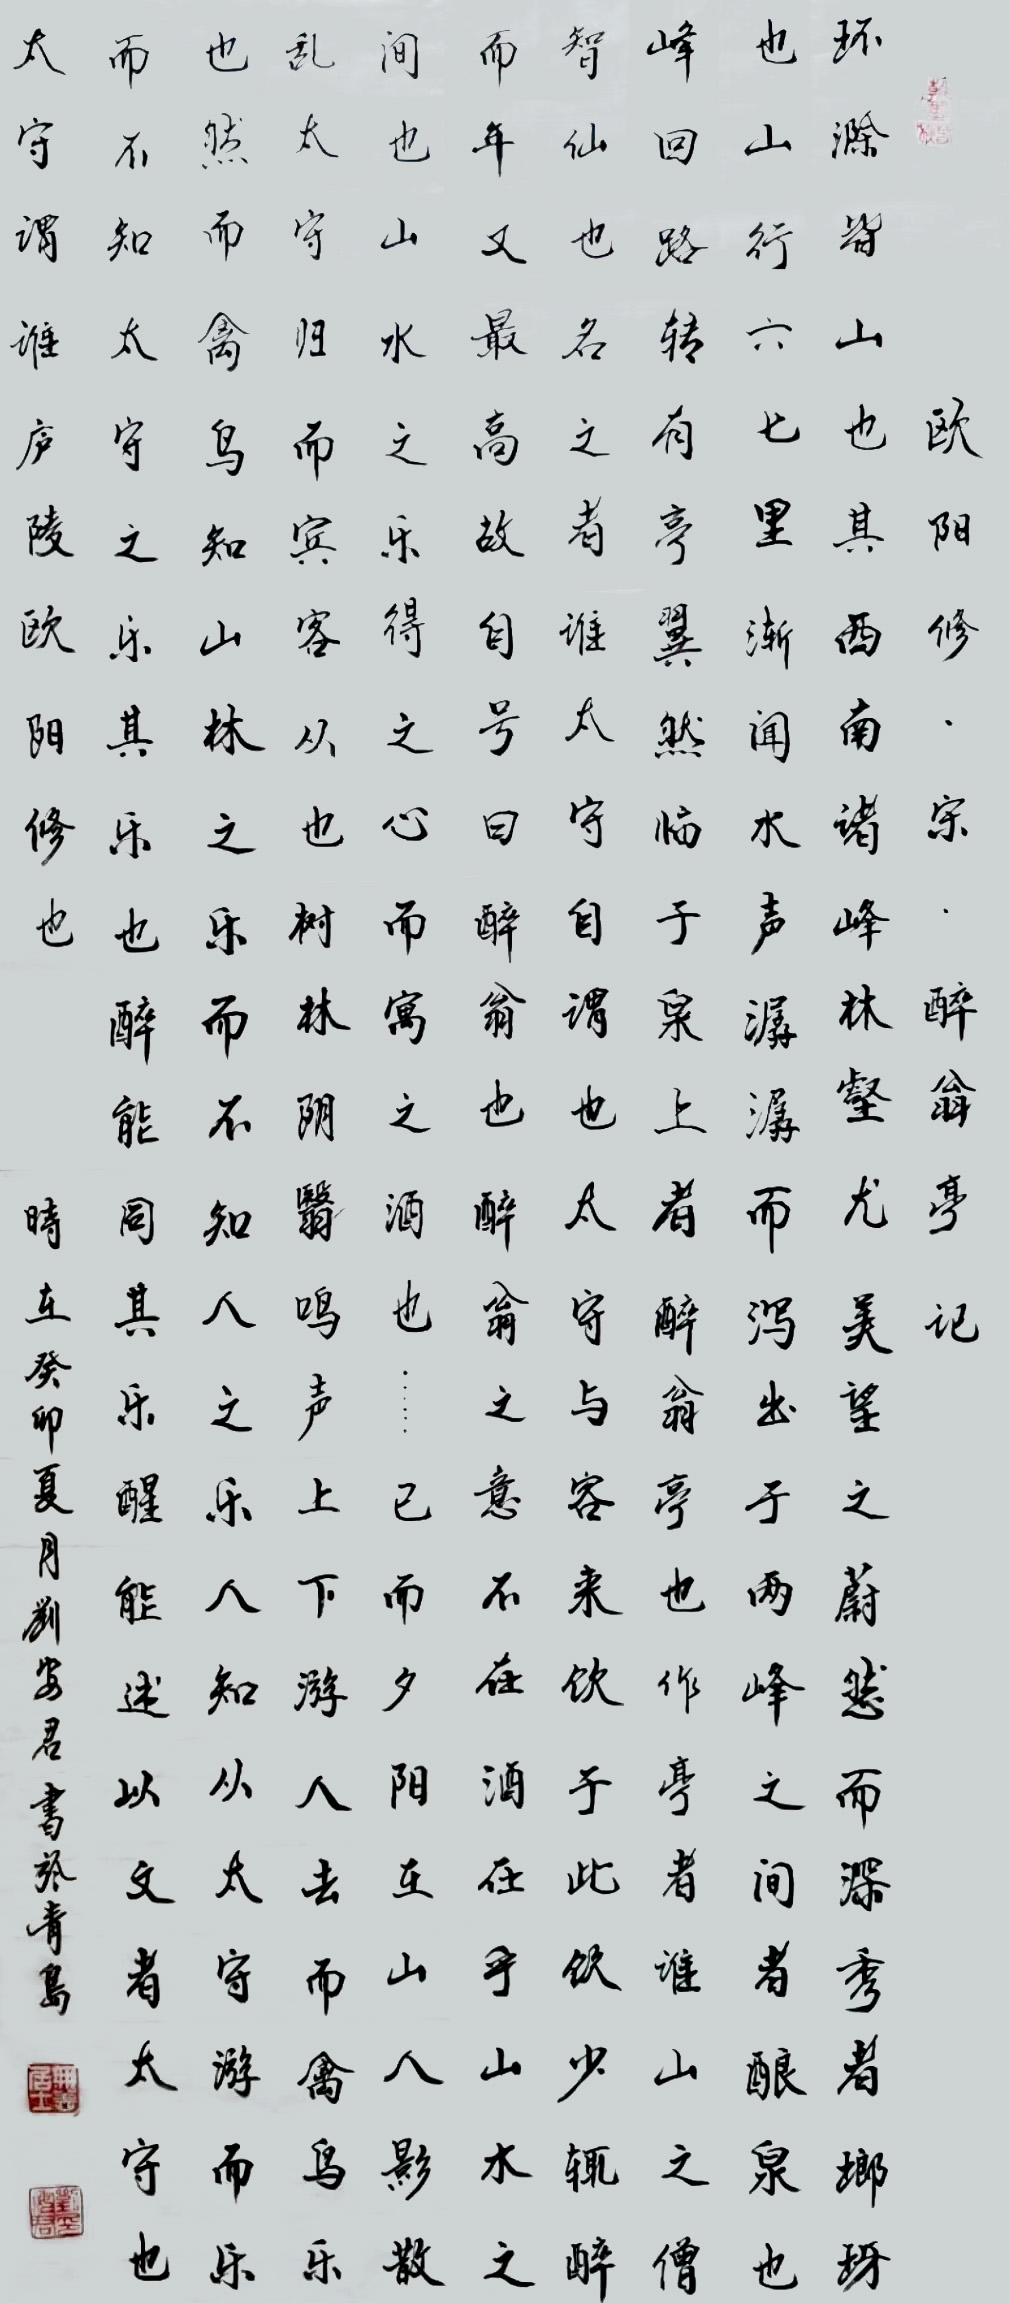 欧阳修·宋·醉翁亭记
环滁皆山也其西南诸峰林壑尤美望之蔚然而深秀者瑯玡
也山行六七里渐闻水声潺潺而泻出于两峰之间者酿泉也
峰回路转有亭翼然临于泉上者醉翁亭也作亭者谁山之僧
智仙也名之者谁太守自谓也太守与客来饮于此饮少辄醉
而年又最高故自号曰醉翁也醉翁之意不在酒在乎山水之
间也山水之乐得之心而寓之酒也……已而夕阳在山人影散
乱太守归而宾客从也树林阴翳鸣声上下游人去而禽鸟乐
也然而禽鸟知山林之乐而不知人之乐人知从太守游而乐
而不知太守之乐其乐也醉能同其乐醒能述以文者太守也
太守谓谁庐陵欧阳修也
時在癸卯夏月劉安君書於青島